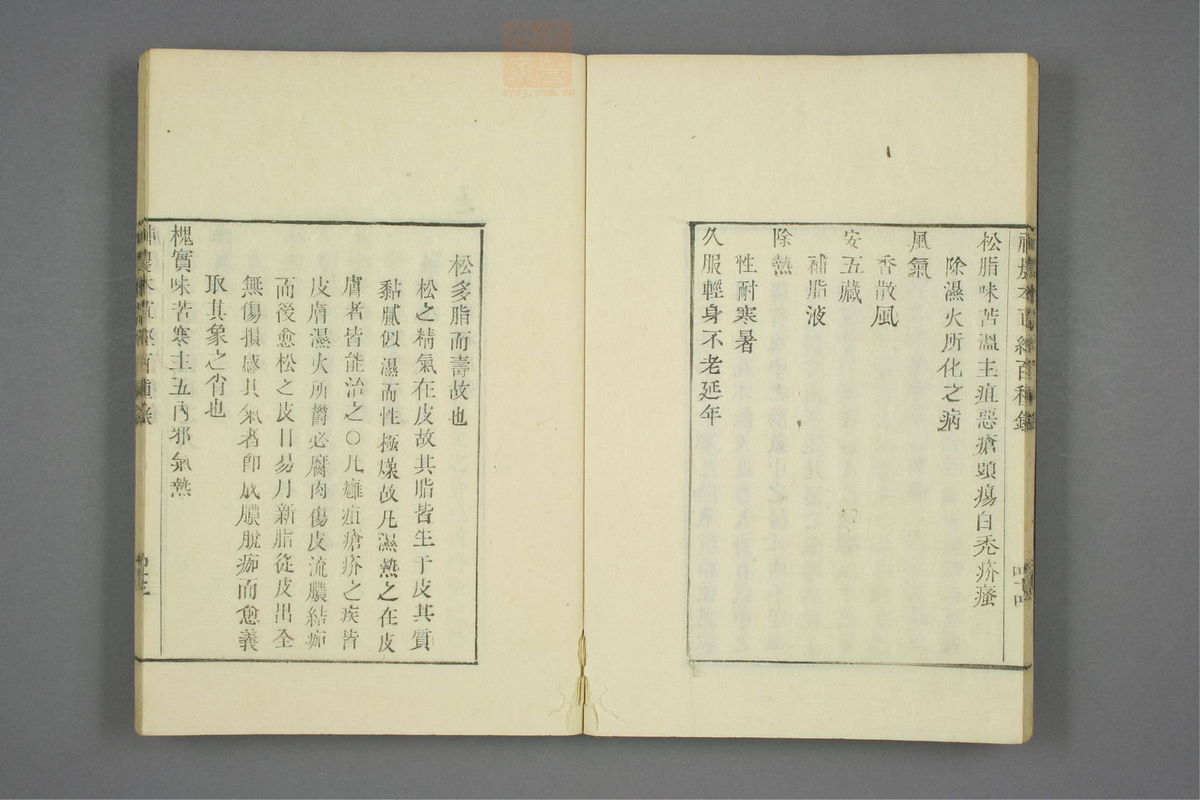 神農本草經百種錄
松脂味苦溫主疽惡瘡頭瘍白禿疥瘙
除濕火所化之病
風氣
香散風
安五藏
補脂液
除熱
性耐寒暑
久服輕身不老延年
松多脂而壽故也
松之精氣在皮故其脂皆生于皮其質
黏膩似濕而性極燥故凡濕熱之在皮
膚者皆能治之○凡癰疽瘡疥之疾皆
皮膚濕火所鬱必腐肉傷皮流膿結痂
而後愈松之皮日易月新脂從皮出全
無傷損感其氣者卽成膿脫痂而愈義
取其象之肖也
槐實味苦寒主五內邪氣熱
神農本草經百種錄
zysj.com.cn